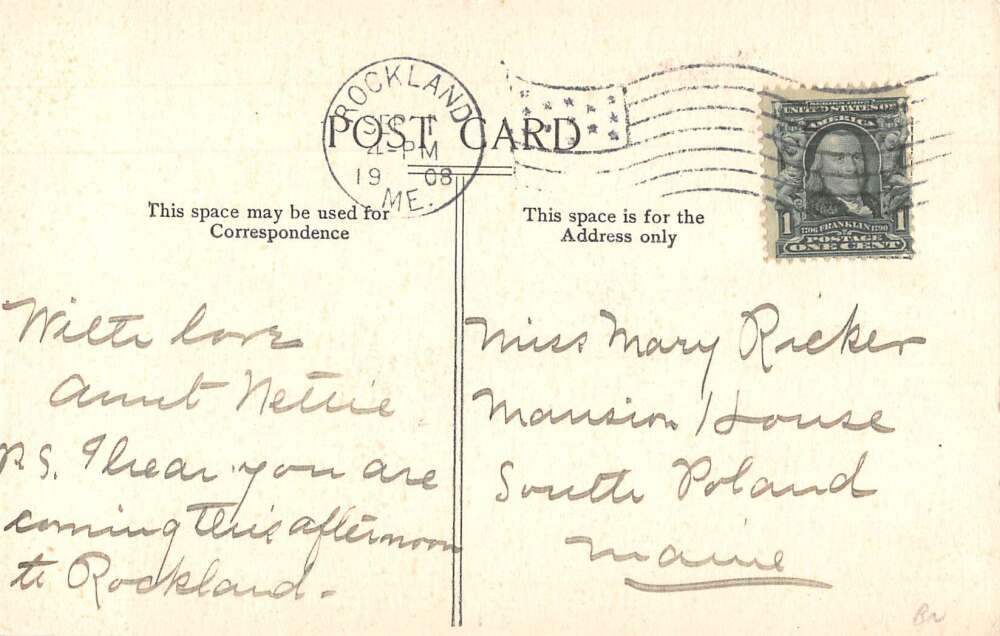 ROCKLAND
SEP 1
4-PM
1908
ME.
POST CARD
This space may be used for
Correspondence
This space is for the
Address only
SERIES 1902
UNITED STATES OF
AMERICA
1 1
1706 FRANKLIN 1790
POSTAGE
ONE CENT
With love
Aunt Nettie
P.S. I hear you are
coming this afternoon
to Rockland.
Miss Mary Ricker
Mansion House
South Poland
Maine